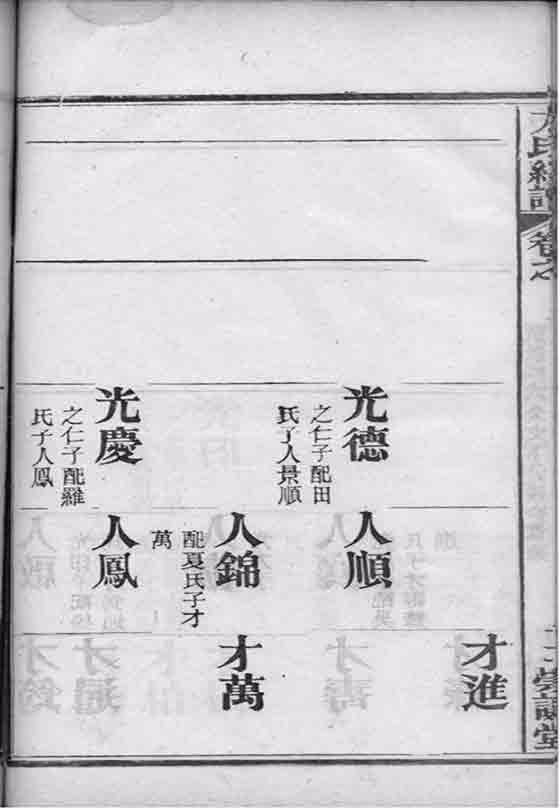 氏經譜
卷之
堂
才進
光德
之仁子配田
氏子人景順
人順
人錦
配夏氏子才
萬
才萬
光慶
之仁子配羅
氏子人鳳
人鳳